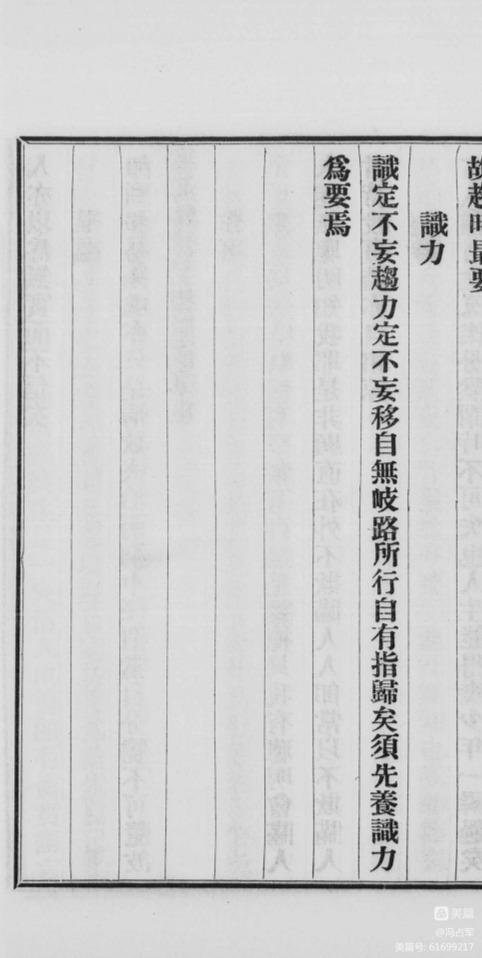 故趨時最要
識力
識定不妄趨力定不妄移自無岐路所行自有指歸矣須先養識力
為要焉
美篇
@冯占军
美篇号: 61699217